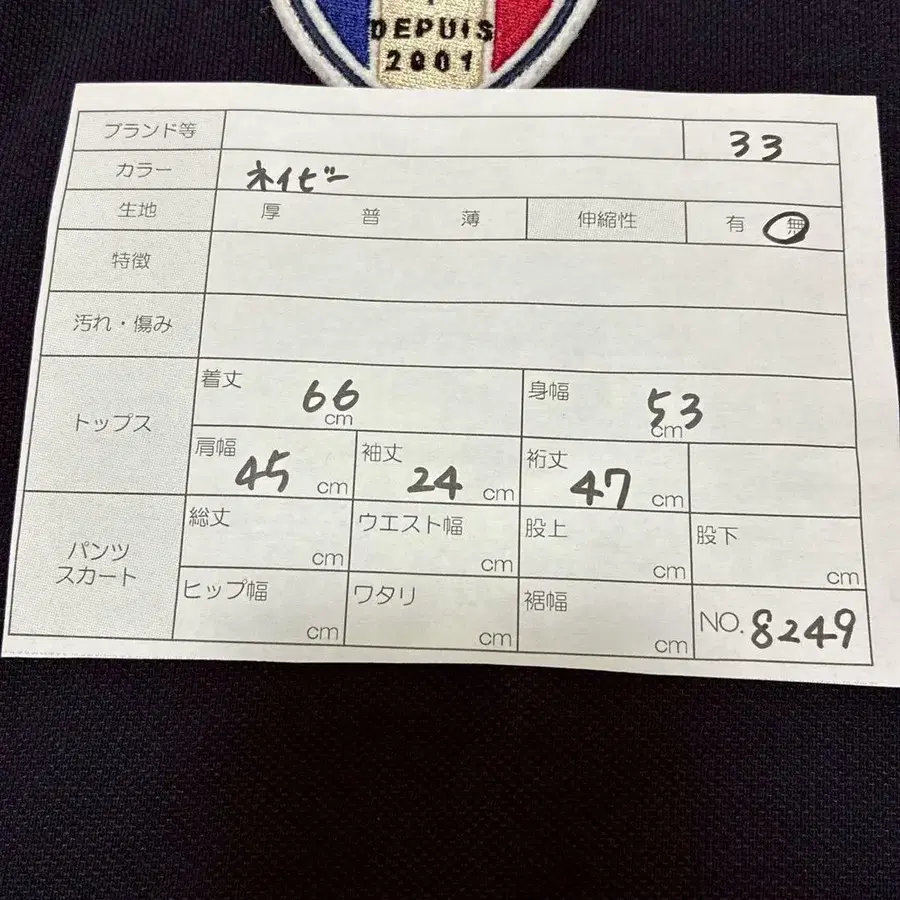 DEPUIS
2001
ブランド等 33
カラー ネイビー
生地 厚 普 薄 伸縮性 有 無
特徴
汚れ・傷み
トップス
着丈 66 cm 身幅 53 cm
肩幅 45 cm 袖丈 24 cm 裄丈 47 cm
パンツ
スカート
総丈 cm ウエスト幅 cm 股上 cm 股下 cm
ヒップ幅 cm ワタリ cm 裾幅 cm NO. 8249